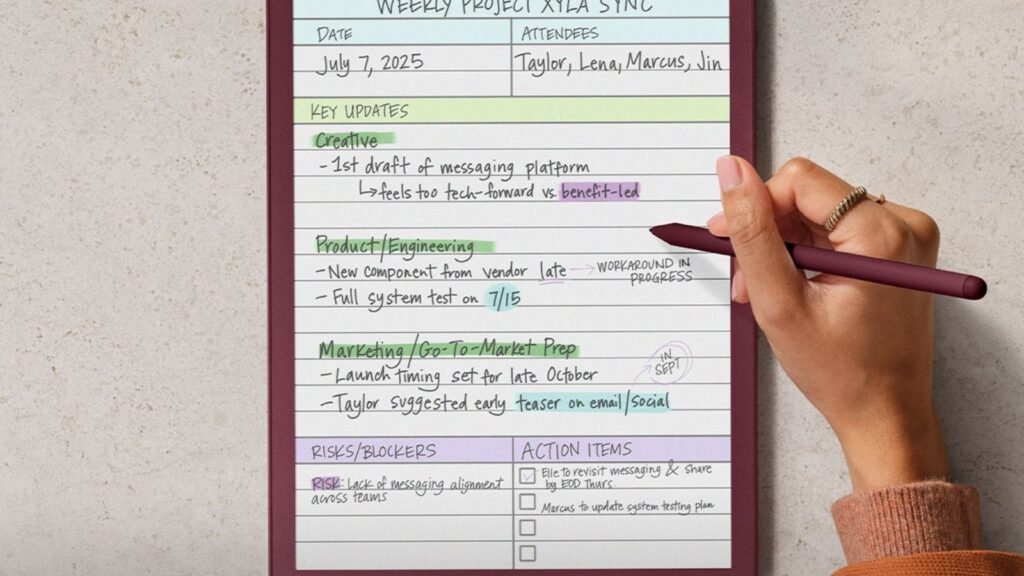 WEEKLY PROJECT XYLA SYNC
DATE
ATTENDEES
July 7, 2025
Taylor, Lena, Marcus, Jin
KEY UPDATES
Creative
- 1st draft of messaging platform
↳ feels too tech-forward vs. benefit-led
Product/Engineering
- New component from vendor late → WORKAROUND IN
PROGRESS
- Full system test on 7/15
Marketing/Go-To-Market Prep
- Launch timing set for late October
IN
SEPT
- Taylor suggested early teaser on email/social
RISKS/BLOCKERS
RISK: Lack of messaging alignment
across teams
ACTION ITEMS
Elle to revisit messaging & share
by EOD Thurs.
Marcus to update system testing plan